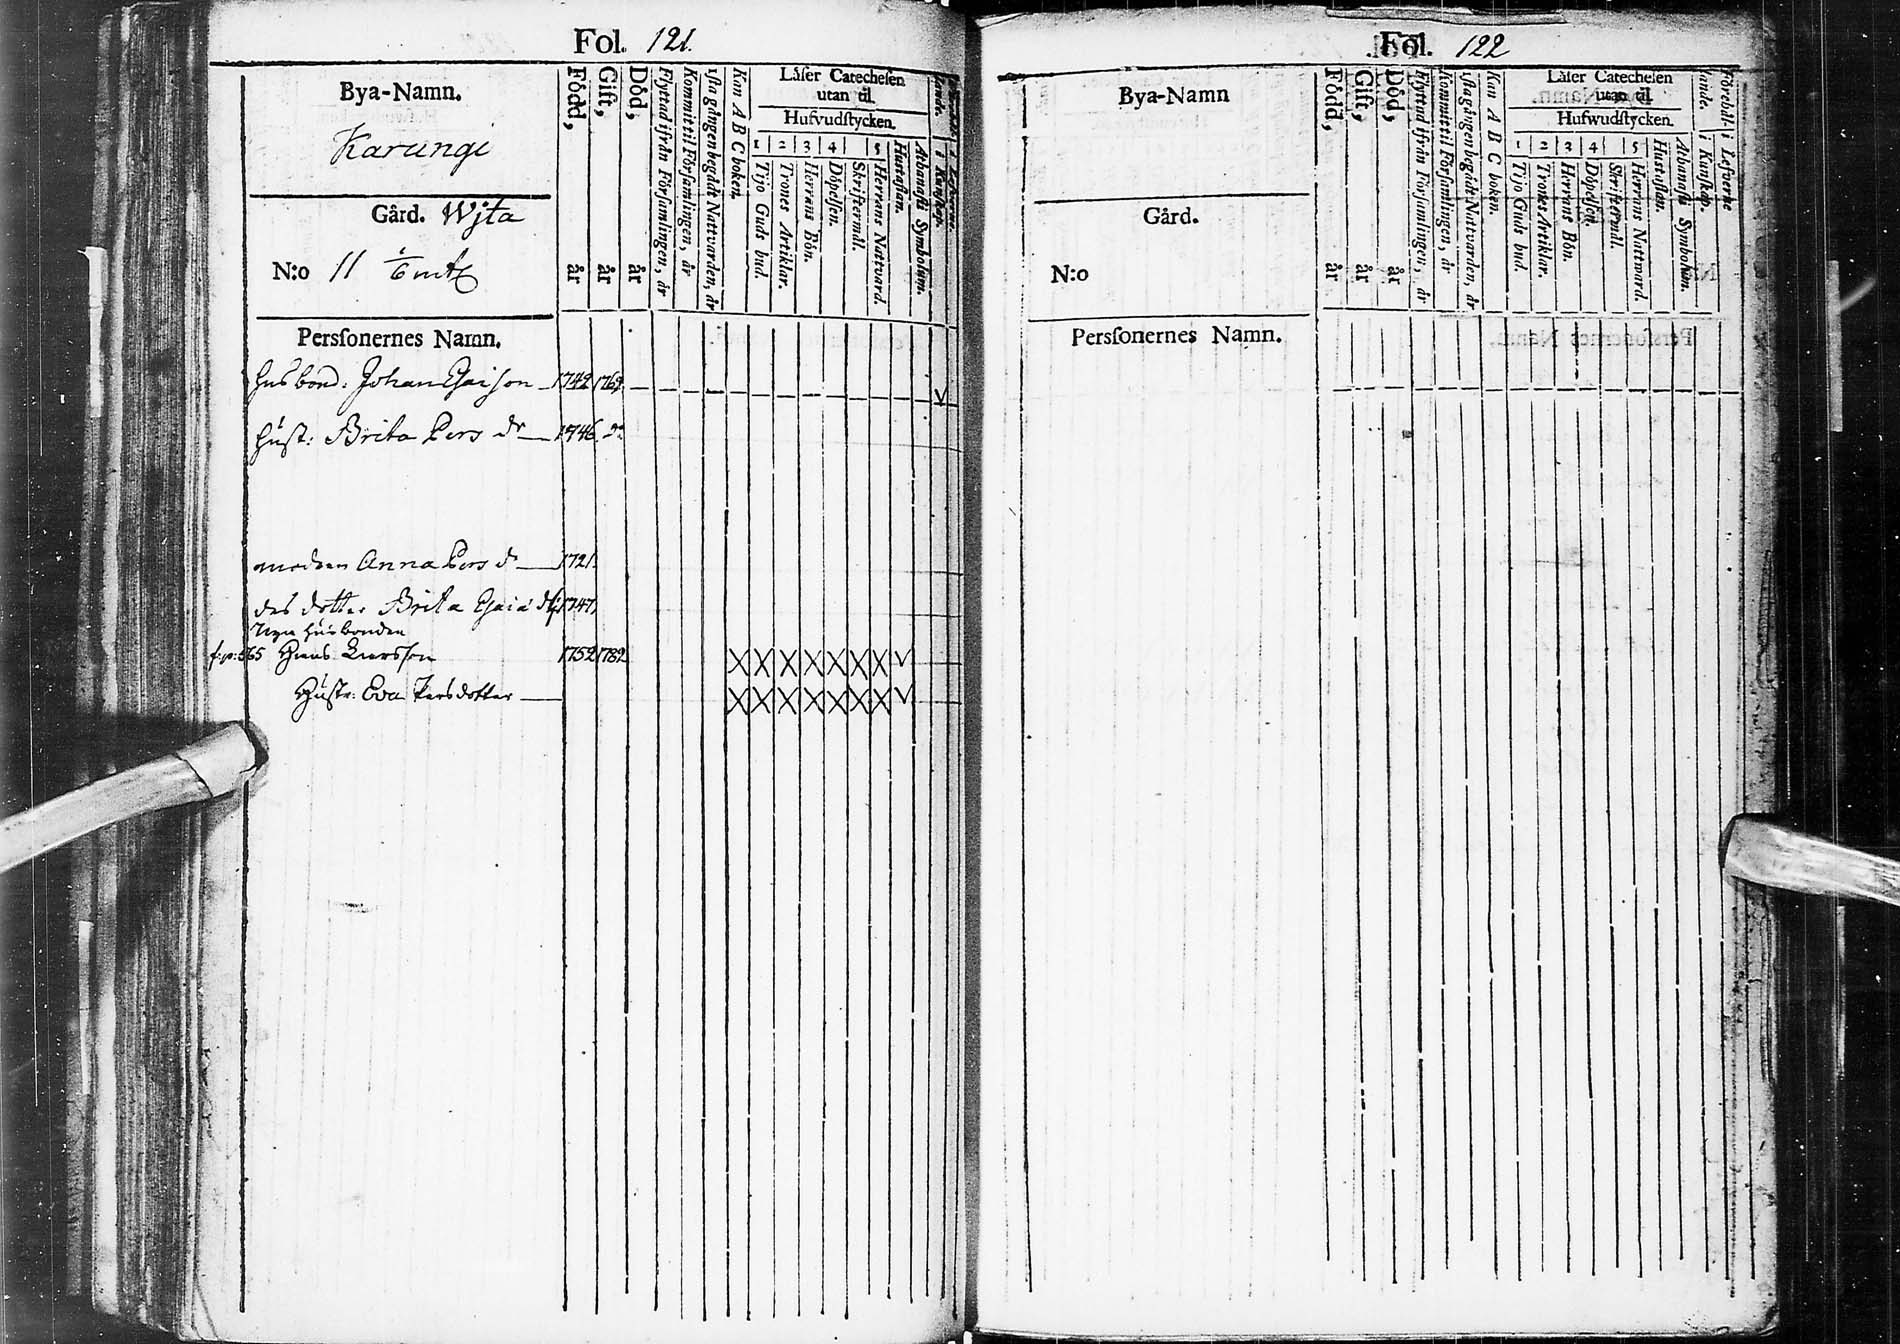 Fol. 121.
Bya-Namn.
Karungi
Gård. Wjta
N:o 11 1/6 mtl
Född, år
Gift, år
Död, år
Flyttad ifrån Församlingen, år
Kommit til Församlingen, år
1sta gången begådt Nattvarden, år
Kan A B C boken.
Låſer Catecheſen
utan til.
Hufvudſtycken.
1 2 3 4 5
Tijo Guds bud.
Trones Artiklar.
Herrans Bön.
Döpelſen.
Skriftermål.
Herrans Nattvard.
Huſtaflan.
Athanaſii Symbolum.
Perſonernes Namn.
husbond: Johan Esaiſon 1742 1769
hust: Brita Pers dr 1746 do
modren Anna Pers dr 1721
des dotter Brita Esaiæ dr 1747
Nya husbonden
f:p: 565 Hans Larsson 1752 1782 X X X X X X X V
Hustr: Eva Persdotter X X X X X X X V
Fol. 122
Bya-Namn
Gård.
N:o
Född, år
Gift, år
Död, år
Flyttad ifrån Församlingen, år
Kommit til Församlingen, år
1sta gången begådt Nattvarden, år
Kan A B C boken.
Låſer Catecheſen
utan til
Hufwudſtycken.
1 2 3 4 5
Tijo Guds bud.
Trones Artiklar.
Herrans Bön.
Döpelſen.
Skriftermål.
Herrans Nattward.
Huſtaflan.
Athanaſii Symbolum.
i Kunſkap.
i Lefverne
Perſonernes Namn.